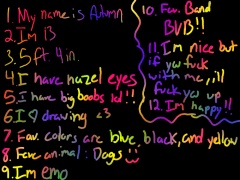 1. My name is Autumn
2. I'm 13
3. 5ft 4in.
4 I have hazel eyes
6. I ♡ drawing <3
7. Fav. colors are blue, black, and yellow
8. Fave animal: Dogs
9. I'm emo
10. Fav. Band
BVB!!
11. I'm nice but
if you fuck
with me, i'll
fuck you up
12. I'm happy!!